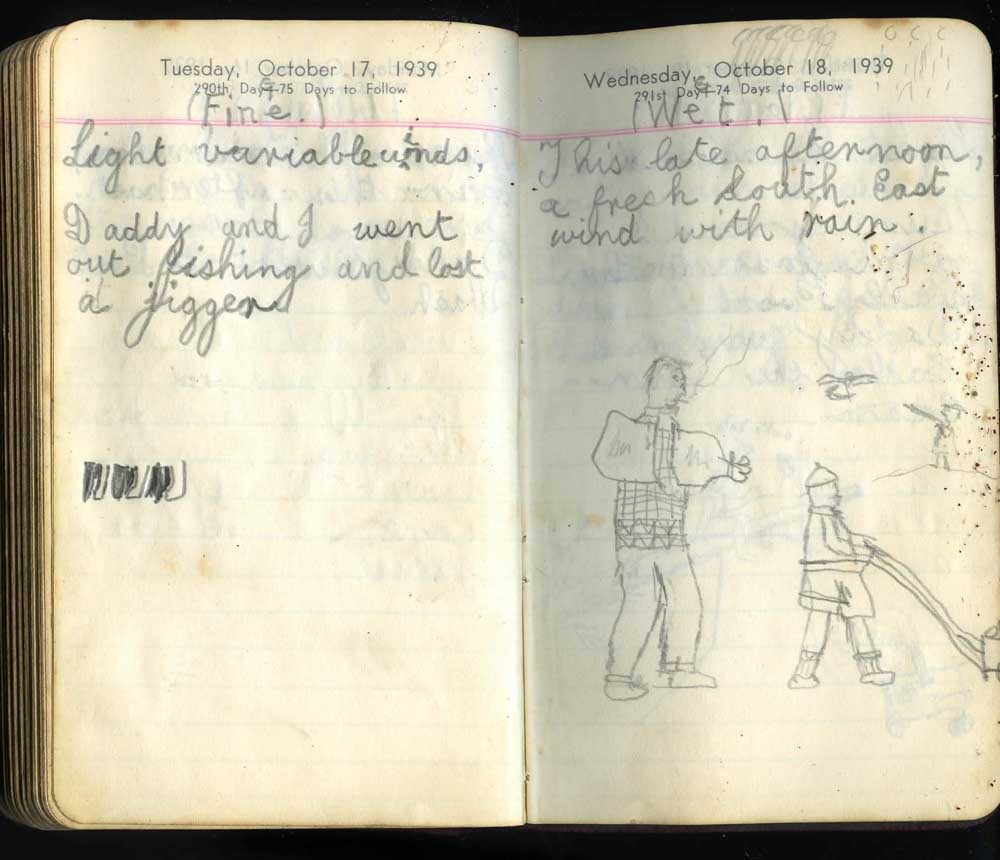 Tuesday, October 17, 1939
290th Day—75 Days to Follow
(Fine.)
Light variable winds,
Daddy and I went
out fishing and lost
a jigger
Wednesday, October 18, 1939
291st Day—74 Days to Follow
(Wet.)
This late afternoon,
a fresh South East
wind with rain.